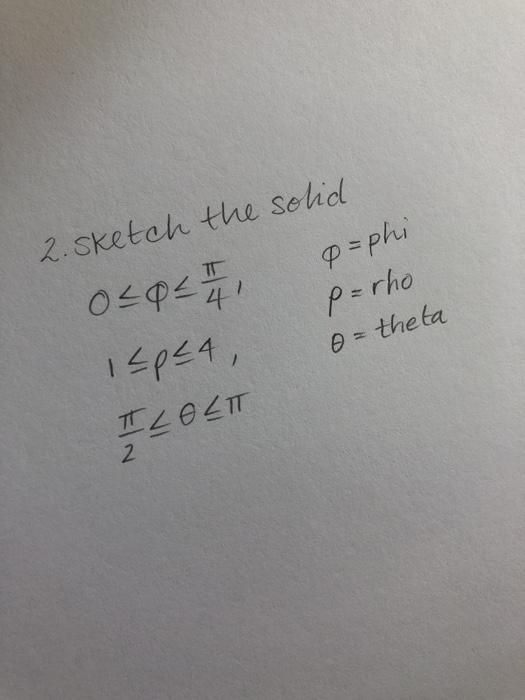 2. sketch the solid
0 ≤ φ ≤ π/4,
1 ≤ ρ ≤ 4,
π/2 ≤ θ ≤ π
φ = phi
ρ = rho
θ = theta